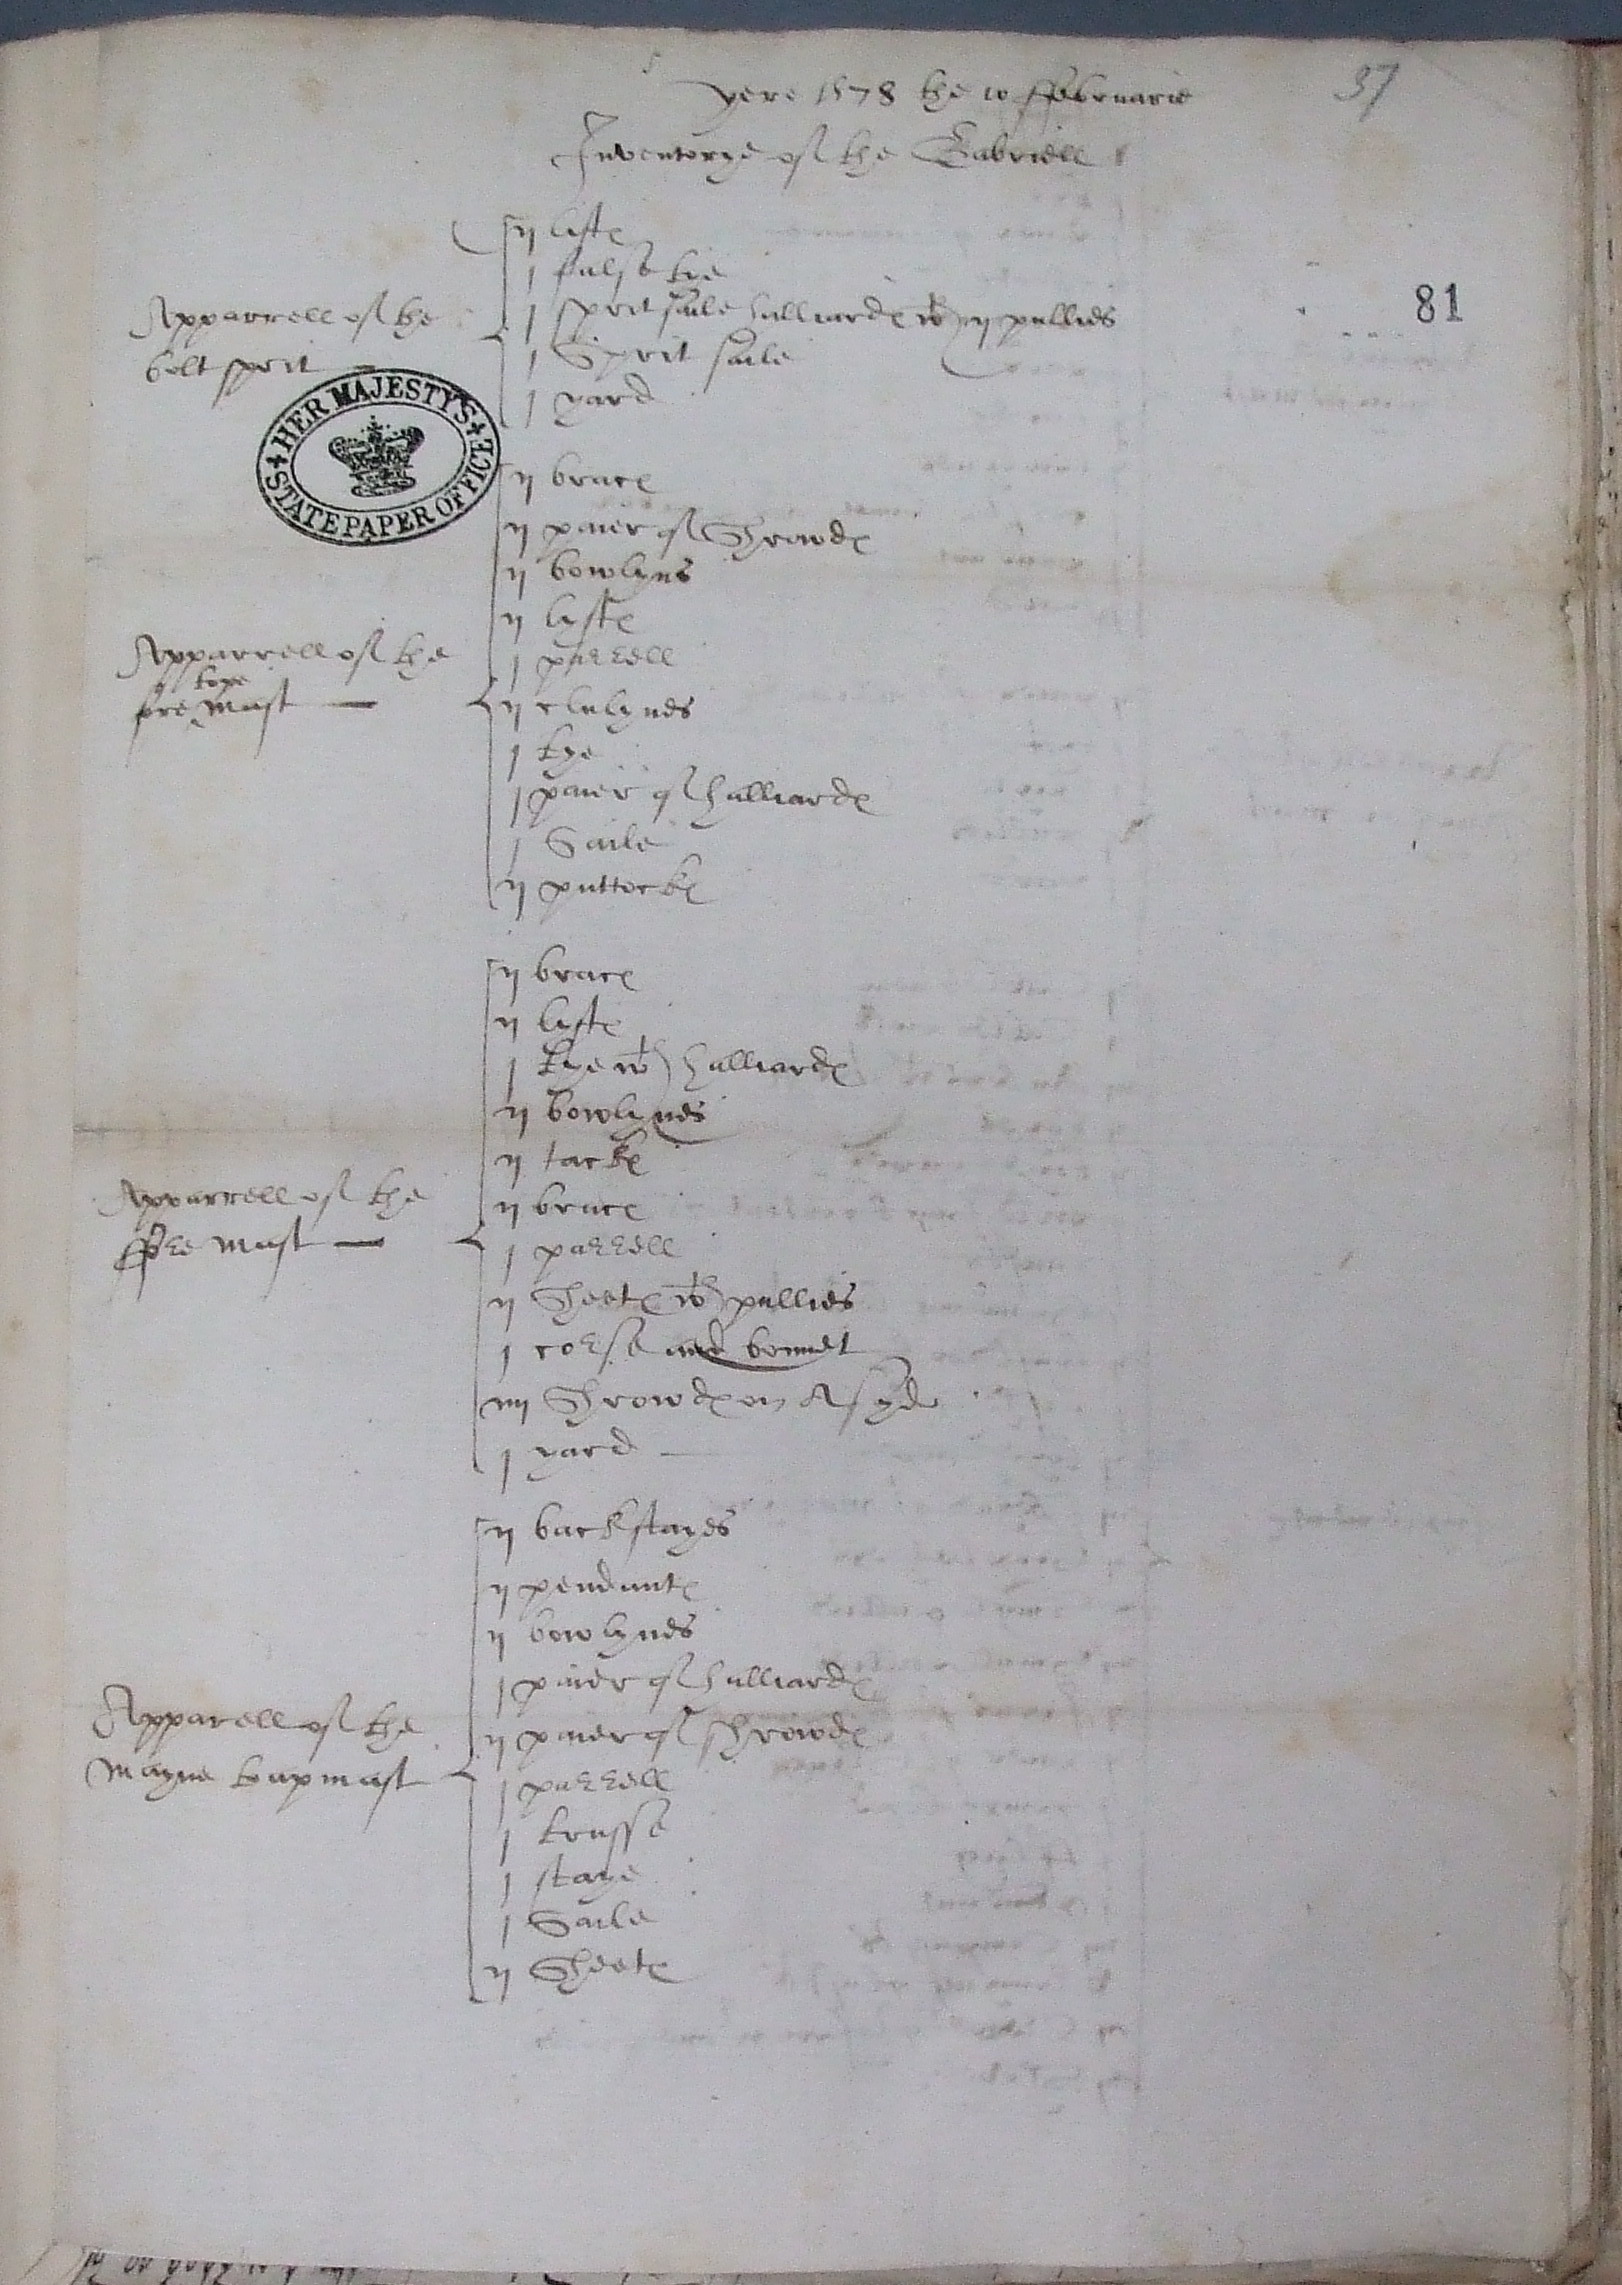 37
yere 1578 the 10 ffebruarie
Inventorye of the Gabriell
81
Apparrell of the
bolt sprit
ij liftes
j false tye
j sprit saile halliardes wth ij pullies
j Sprit saile
j yard
HER MAJESTY'S STATE PAPER OFFICE
Apparrell of the
fore tope mast
ij braces
ij paier of Shrowdes
ij bowlyns
ij liftes
j parrell
ij clulynes
j tye
j paier of halliardes
j Saile
ij puttockes
Apparrell of the
ffore mast
ij braces
ij liftes
j tye wth halliardes
ij bowlynes
ij tackes
ij braces
j parrell
ij Sheetes wth pullies
j corse and bonnet
iiij Shrowdes on A syde
j yard
Apparell of the
mayne toapmast
ij backstayes
ij pendantes
ij bowlynes
j paier of halliardes
ij paier of shrowdes
j parrell
j trusse
j staye
j Saile
ij Sheetes